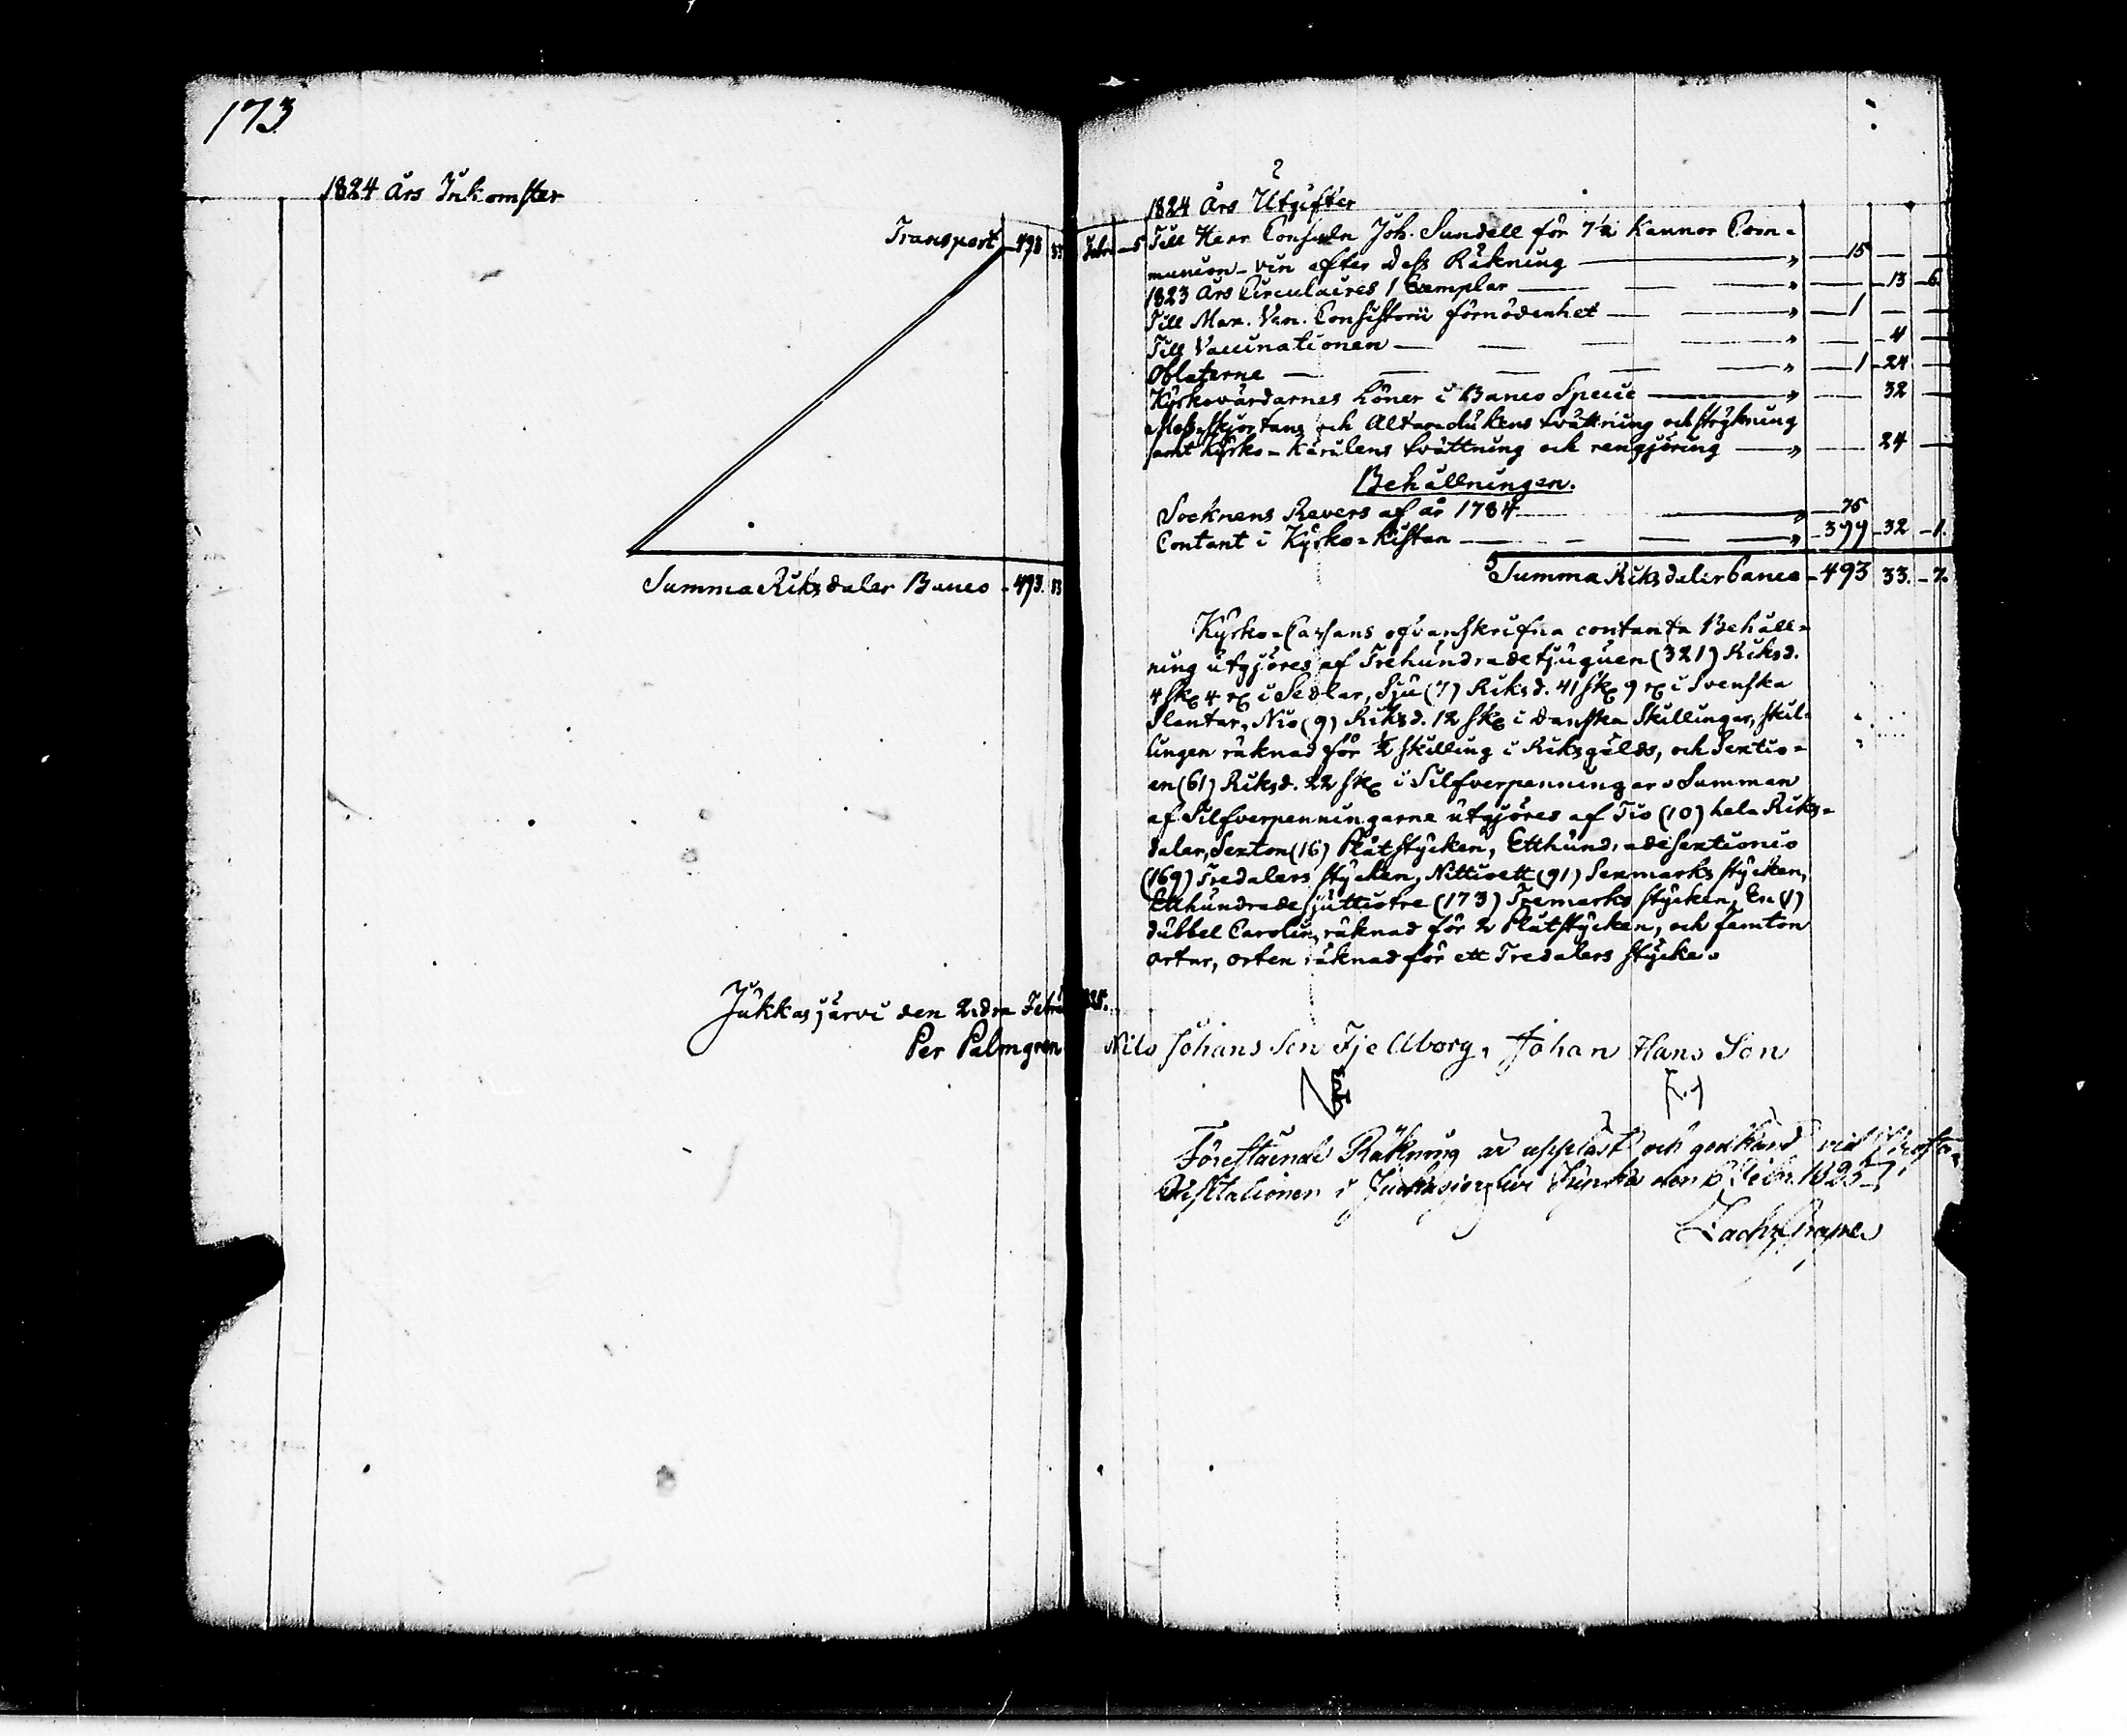 173
1824 års Inkomster
Transport 493 33
Summa Riksdaler Banco 493. 33
Jukkasjärvi den 2:dra Febru
Per Palmgren
1824 års Utgifter
Febr. 5 Till Herr Consuln Joh. Sundell för 7½ Kannor Com-
munion-vin efter dess Räkning " 15 — —
1823 års Circulaires 1 Exemplar " — 13 6.
Till Max. Ven. Consistorii förnödenhet " 1 — —
Till Vaccinationen " — 4 —
Oblaterne " 1 24 —
Kyrkovärdarnes Löner i Banco Specie " — 32 —
Messskjortans och Altaredukens tvättning och strykning
samt Kyrko-Kärilens tvättning och rengjöring " — 24 —
Behållningen.
Socknens Revers af år 1784 " 75
Contant i Kyrko-Kistan " 399 32 1.
Summa Riksdaler Banco 493 33. 7.
Kyrko-Cassans ofvanskrifna contanta Behåll-
ning utgjöres af Trehundradetjuguen (321) Riksd.
4 sk 4 r i Sedlar, Sju (7) Riksd. 41 sk 9 r i Svenska
Slantar, Nio (9) Riksd. 12 sk i Danska Skillingar, skil-
lingen räknad för ½ skilling i Riksgälds, och Sextio-
en (61) Riksd. 22 sk i Silfverpenningar. Summan
af Silfverpenningarne utgjöres af Tio (10) hela Riks-
daler, Sexton (16) Plåtstycken, Etthundradesextionio
(169) Tredalers stycken, Nittioett (91) Sexmarks stycken,
Etthundradesjuttiotre (173) Tremarks stycken, En (1)
dubbel Carolin, räknad för 2 Plåtstycken, och femton
orter, orten räknad för ett Tredalers stycke.
Nils Johans Son Fjellborg, Johan Hans Son
Förestående Räkning är uppläst och godkänd vid
Visitationen i Kyrka den 6 1825
Zach. Grape